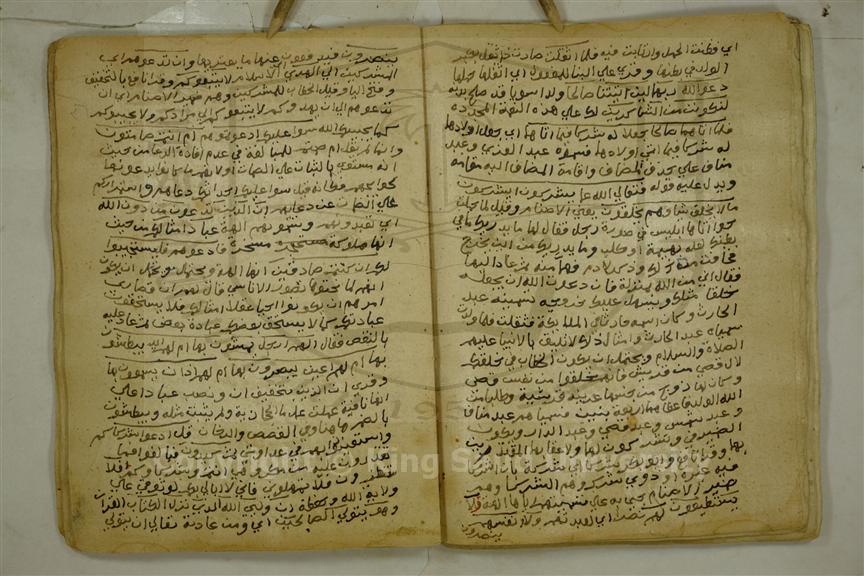 اي فطنت الحمل وارتابت فيه فلما اثقلت صارت ذا ثقل بكبر
الولد في بطنها وقري علي البنا للمفعول اي اثقلها حملها
دعوا الله ربهما لئن اتيتنا صالحا ولدا سويا قد صلح بدنه
لنكونن من الشاكرين لك علي هذه النعمة المجددة
فلما اتاهما صالحا جعلا له شركا فيما اتاهما اي جعل اولادهما
له شركا فيما اتي اولادهما فسموه عبد العزي وعبد
مناف علي حذف المضاف واقامة المضاف اليه مقامه
ويدل عليه قوله فتعالي الله عما يشركون ايشركون
مالا يخلق شيا وهم يخلقون يعني الاصنام وقيل لما حملت
حوا اتاها ابليس في صورة رجل فقال لها ما يدريك ما في
بطنك لعله بهيمة او كلب وما يدريك من اين يخرج
فخافت من ذلك وذكرت لادم فهما منه ثم عاد اليها
فقال اني من الله بمنزلة فان دعوت الله ان يجعله
خلقا مثلك ويسهل عليك خروجه تسميه عبد
الحارث وكان اسمه حارثا في الملايكة فتقبلت فلما ولدت
سمياه عبد الحارث وامثال ذلك لا تليق بالانبيا عليهم
الصلاة والسلام ويحتمل ان يكون الخطاب في خلقكم
لال قصي من قريش فانهم خلقوا من نفس قصي
وكان لها زوج من جنسها عربية قرشية وطلبا من
الله الولد فاعطاهما اربعة بنين فسمياهم عبد مناف
وعبد شمس وعبد قصي وعبد الدار ويكون
الضمير في يشركون لهما ولاعقابهما المقتدين
بهما وقرا نافع وابو بكر شركا اي شركة بان اشركا
فيه غيره او ذوي شرك وهم الشركا وهم
ضمير الاصنام جي به علي تسميتهم اياها الهة ولا
يستطيعون لهم نصرا اي لعبدتهم ولا انفسهم
ينصرون
ينصرون فيدفعون عنها ما يعتريها وان تدعوهم اي
المشركين الي الهدي الاسلام لا يتبعوكم وقرا نافع بالتخفيف
وفتح البا وقيل الخطاب للمشركين وهم ضمير الاصنام اي ان
تدعوهم الي ان يهدوكم لا يتبعوكم الي مرادكم ولا يجيبوكم
كما يجيبكم الله سوا عليكم ادعوتموهم ام انتم صامتون
وانما لم يقل ام صمتم للمبالغة في عدم افادة الدعا من حيث
انه مستوي بالثبات علي الصمات او لانهم ما كانوا يدعونها
لحوايجهم فكانه قيل سوا عليكم احداثكم دعاهم واستمراركم
علي الصمات عن دعايهم ان الذين تدعون من دون الله
اي تعبدونهم وتسمونهم الهة عباد امثالكم من حيث
انها مملوكة مسخرة فادعوهم فليستجيبوا
لكم ان كنتم صادقين انها الهة ويحتمل
انهم لما نحتوها بصور الاناسي قال لهم ان قصاري
امرهم ان يكونوا احيا عقلا امثالكم فلا يستحقون
عبادتكم كما لا يستحق بعضكم عبادة بعض ثم عاد عليه
بالنقض فقال الهم ارجل يمشون بها ام لهم ايد يبطشون
بها ام لهم اعين يبصرون بها ام لهم اذان يسمعون بها
وقري ان الذين بتخفيف ان ونصب عبادا علي
انها نافية عملت عمل ما الحجازية ولم يثبت مثله ويبطشون
بالضم ههنا وفي القصص والدخان قل ادعوا شركاكم
واستعينوا بهم في عداوتي ثم كيدون فبالغوا فيما
تقدرون عليه
تنظرون فلا تمهلون فاني لا ابالي بكم لوثوقي علي
ولاية الله وحفظه ان وليي الله الذي نزل الكتاب القران
وهو يتولي الصالحين اي ومن عادته تعالي ان يتولي